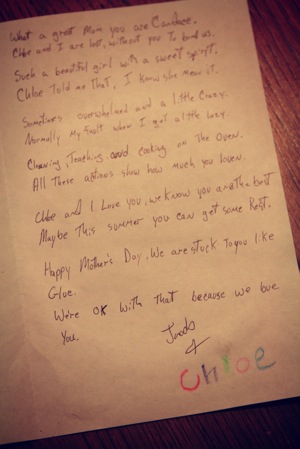 What a great Mom you are Candace.
Chloe and I are lost, without you to bind us.
Such a beautiful girl with a sweet spirit.
Chloe Told me That, I Know she mean it.
Sometimes overwhelmed and a little Crazy.
Normally my fault when I get a little lazy.
Cleaning, Teaching, and cooking on The Oven.
All These actions show how much you loven.
Chloe and I Love you, we know you are the best
Maybe This summer you can get some Rest.
Happy Mother's Day, We are stuck To you like
Glue.
We're OK with That because we love
You.
&
Chloe